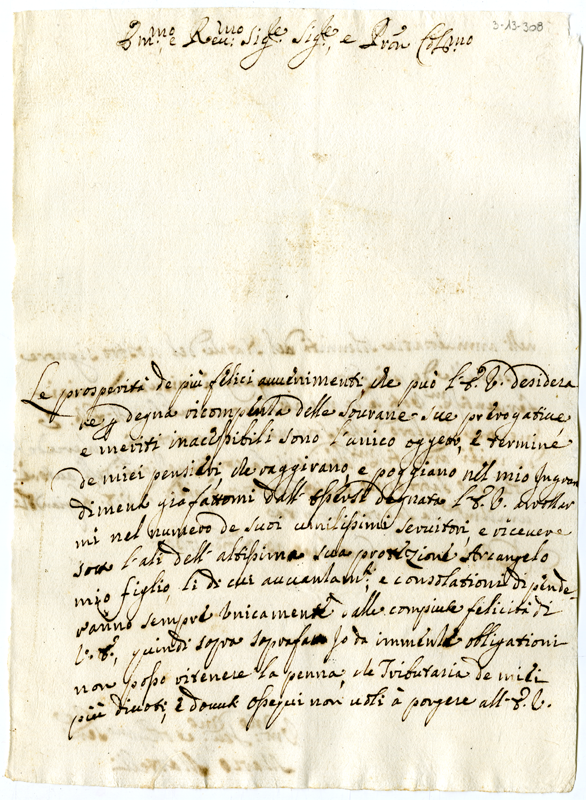 3-13-308
Em.mo e Reu.mo Sig.re Sig.re, e Pron Col.mo
Le prosperità de più felici auuenimenti che può l'E. V. desidera
re p degna ricompensa delle Sourane sue prerogatiue
e meriti inacessibili sono l'unico oggetto, e termine
de miei pensieri che raggirano e poggiano nel mio Ingran
dimento già fattomi dall' essersi degnata l'E. V. arollar
mi nel numero de suoi umilissimi seruitori, e riceuere
sotto l'ali dell' altissima sua protezione Arcangelo
mio figlio, li di cui auuantam.ti, e consolationi dipende
ranno sempre unicamente dalle compiute felicità di
V. E., quindi sopra soprafatto da immense obligationi
non posso ritenere la penna, che Tributaria de miei
più diuoti, e douuti ossequi non uoli à porgere all' E. V.